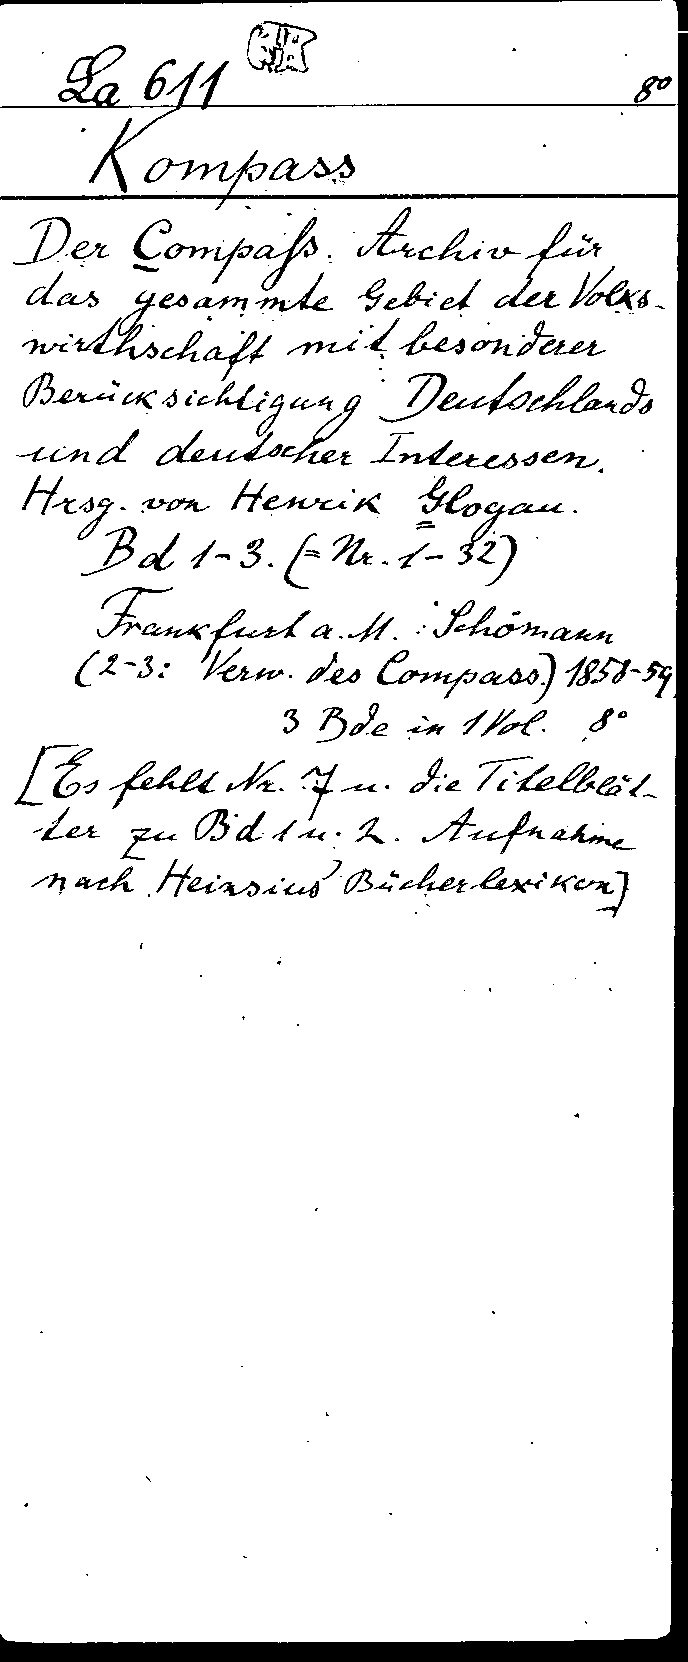 La 611
8°
Kompass
Der Compaſs. Archiv für
das gesammte Gebiet der Volks-
wirthschaft mit besonderer
Berücksichtigung Deutschlands
und deutscher Interessen.
Hrsg. von Henrik Glogau.
Bd 1-3. (= Nr. 1-32)
Frankfurt a. M. : Schömann
(2-3: Verw. des Compass.) 1858-59
3 Bde in 1 Vol. 8°
[Es fehlt Nr. 7 u. die Titelblät-
ter zu Bd 1 u. 2. Aufnahme
nach Heinsius' Bücherlexikon]